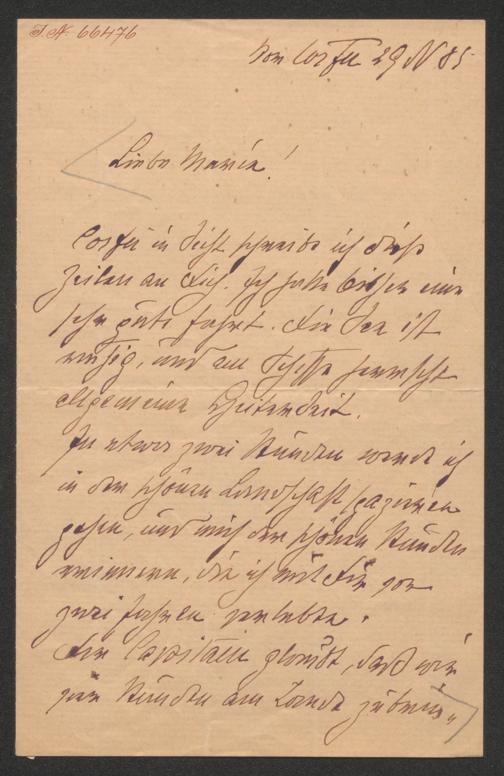 I.N. 66476
Vor Corfu 29 N 85
Liebe Maria!
Corfu in Sicht schreibe ich diese
Zeilen an Dich. Ich hatte bisher eine
sehr gute Fahrt. Die See ist
ruhig, und am Schiffe herrscht
allgemeine Heiterkeit.
In etwa zwei Stunden werde ich
in der schönen Landschaft spazieren
gehen, und mich der schönen Stunden
erinnern, die ich mit Dir vor
zwei Jahren verlebte.
Der Capitän glaubt, daß wir
vier Stunden am Lande zubrin„